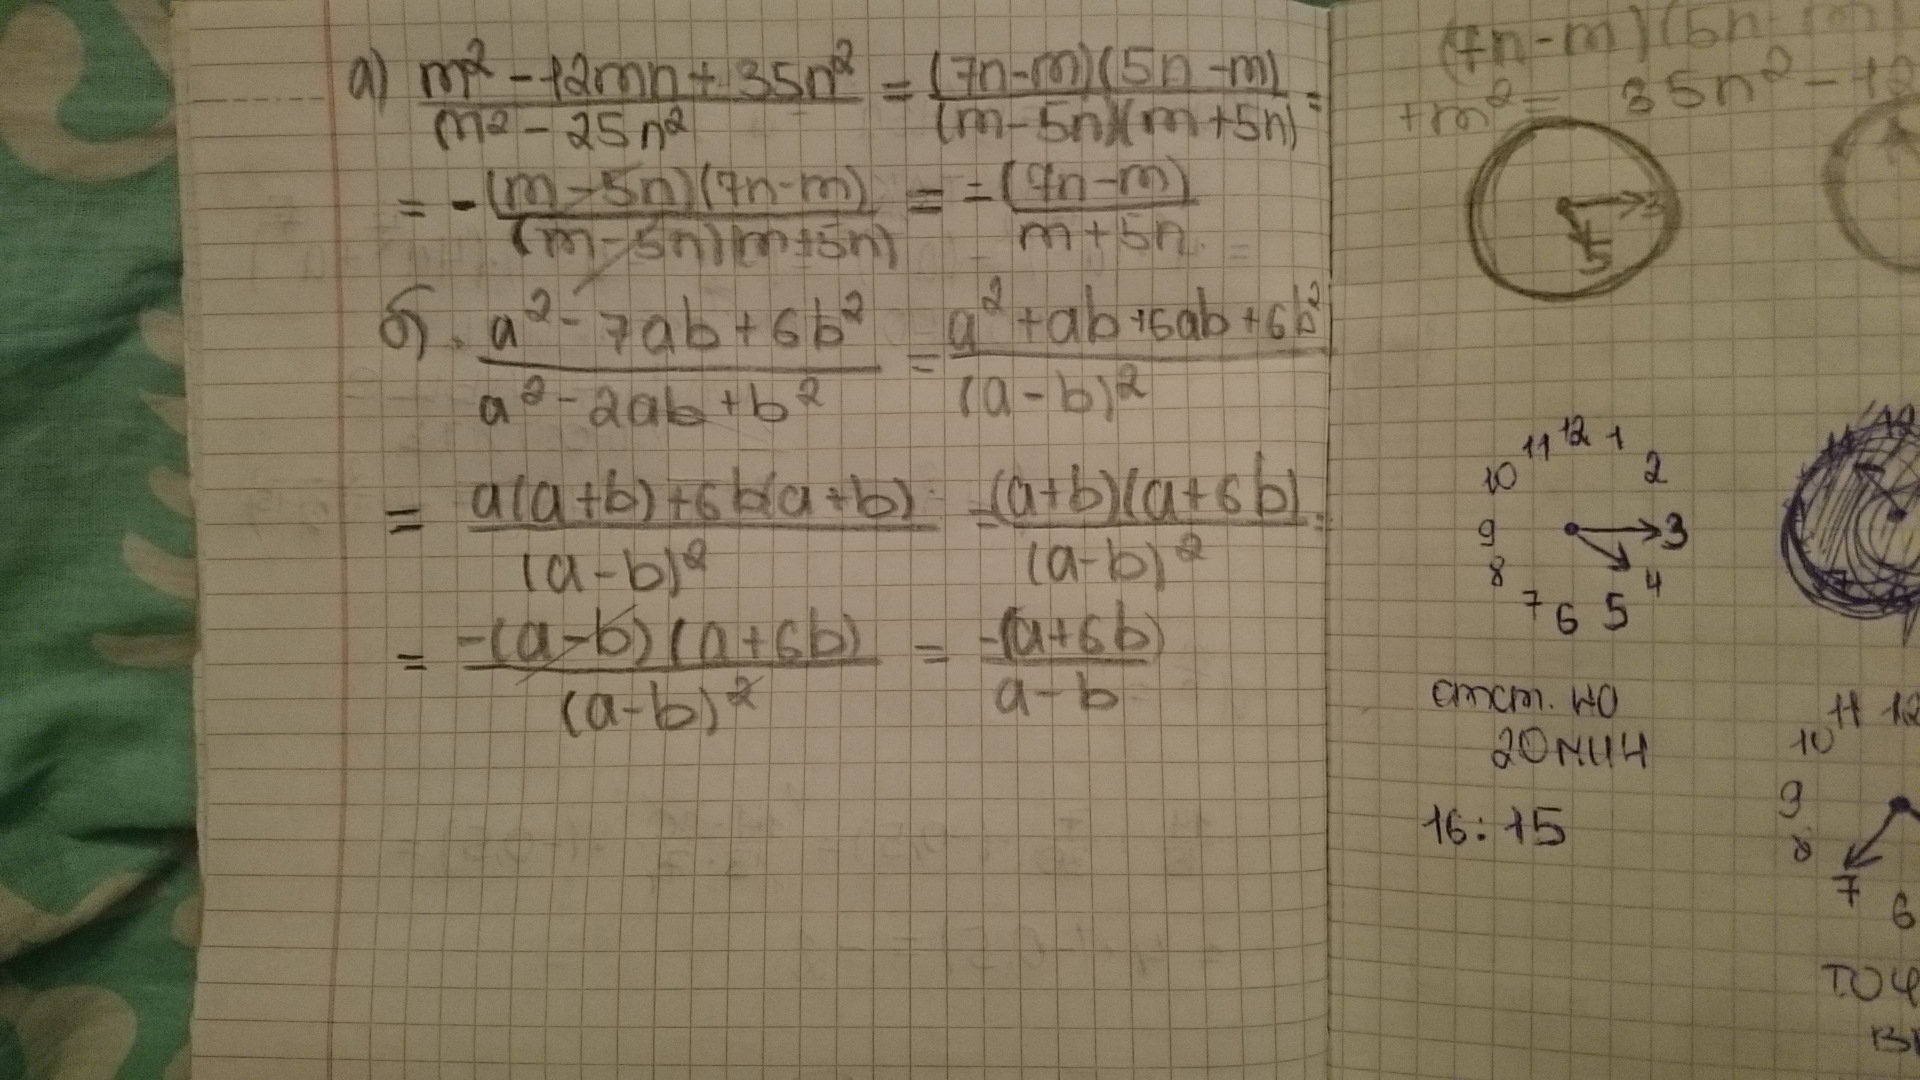 а) (m² - 12mn + 35n²)/(m² - 25n²) = ((7n-m)(5n-m))/((m-5n)(m+5n)) =
= -((m-5n)(7n-m))/((m-5n)(m+5n)) = -(7n-m)/(m+5n)
б) (a² - 7ab + 6b²)/(a² - 2ab + b²) = (a² + ab + 6ab + 6b²)/((a-b)²)
= (a(a+b) + 6b(a+b))/((a-b)²) = ((a+b)(a+6b))/((a-b)²) =
= (-(a-b)(a+6b))/((a-b)²) = (-(a+6b))/(a-b)
(7n-m)(5n-m)
+m² = 35n² - 12
3
5
11 12 1
10 2
9 3
8 4
7 6 5
отст. на
20 мин
16:15
11 12
10
9
8
7
6